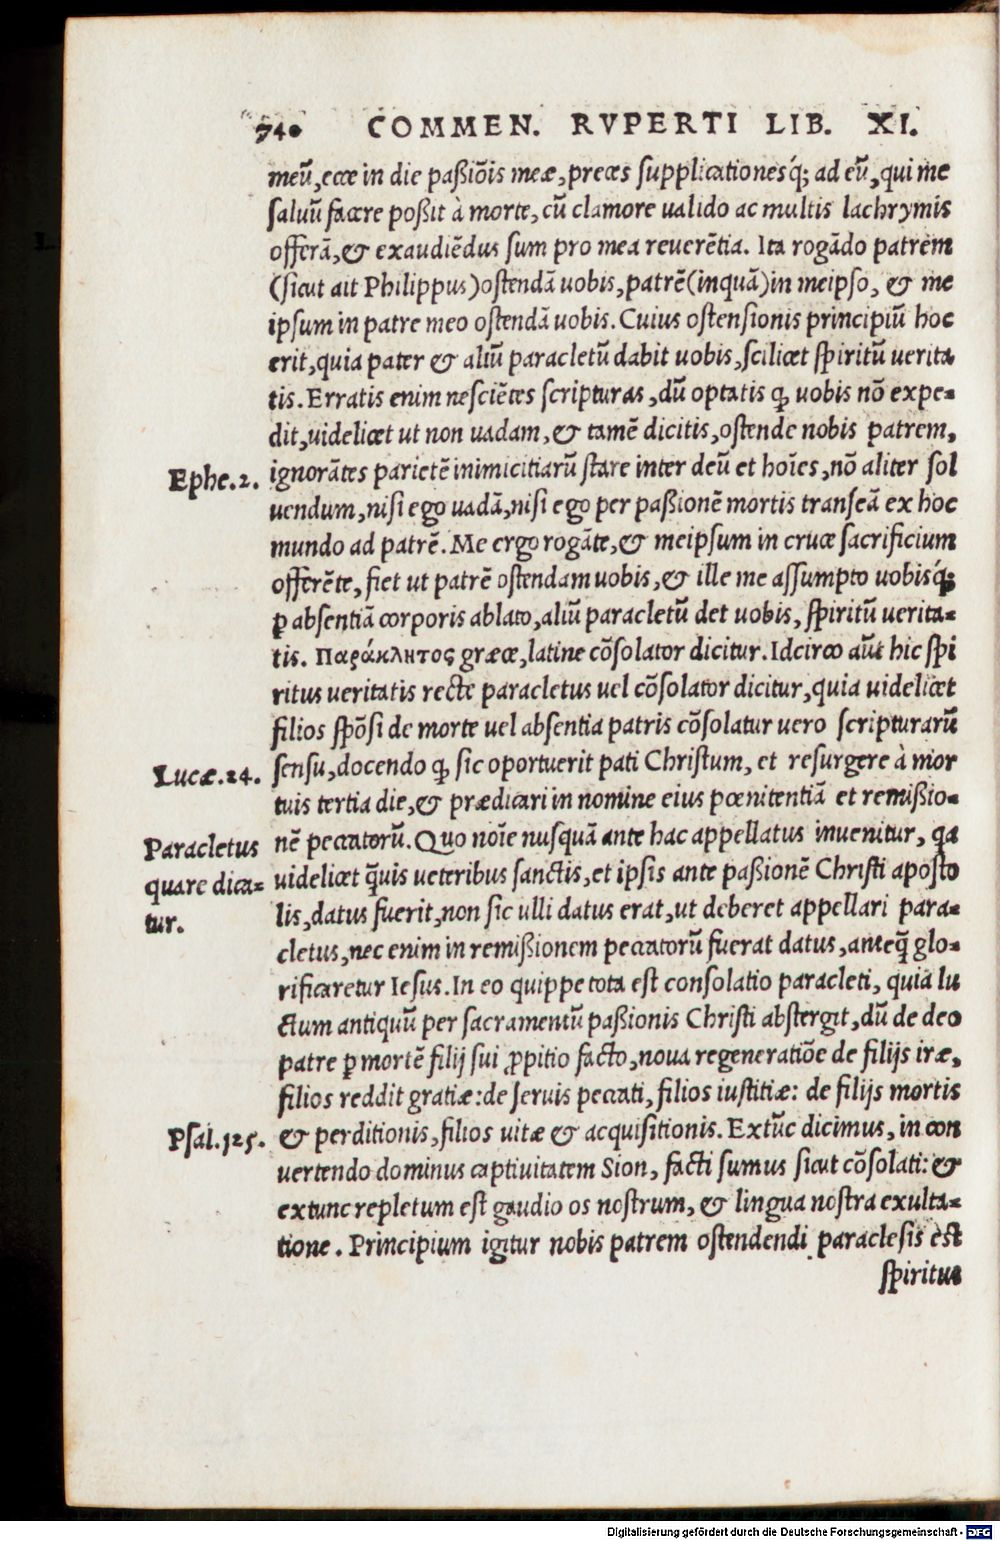 740 COMMEN. RVPERTI LIB. XI.
meū, ecce in die paßiōis meæ, preces supplicationesq́; ad eū, qui me
saluū facere poßit à morte, cū clamore ualido ac multis lachrymis
offerā, & exaudiēdus sum pro mea reuerētia. Ita rogādo patrem
(sicut ait Philippus) ostendā uobis, patrē (inquā) in meipso, & me
ipsum in patre meo ostendā uobis. Cuius ostensionis principiū hoc
erit, quia pater & aliū paracletū dabit uobis, scilicet spiritū uerita
tis. Erratis enim nesciētes scripturas, dū optatis ꝙ uobis nō expe-
dit, uidelicet ut non uadam, & tamē dicitis, ostende nobis patrem,
Ephe.2. ignorātes parietē inimicitiarū stare inter deū et hoīes, nō aliter sol
uendum, nisi ego uadā, nisi ego per paßionē mortis transeā ex hoc
mundo ad patrē. Me ergo rogāte, & meipsum in cruce sacrificium
offerēte, fiet ut patrē ostendam uobis, & ille me assumpto uobisq́;
ꝑ absentiā corporis ablato, aliū paracletū det uobis, spiritū uerita-
tis. Παράκλητος græce, latine cōsolator dicitur. Idcirco aūt hic spi
ritus ueritatis recte paracletus uel cōsolator dicitur, quia uidelicet
filios spōsi de morte uel absentia patris cōsolatur uero scripturarū
Lucæ.24. sensu, docendo ꝙ sic oportuerit pati Christum, et resurgere à mor
tuis tertia die, & prædicari in nomine eius pœnitentiā et remißio-
Paracletus nē peccatorū. Quo noīe nusquā ante hac appellatus inuenitur, qa
quare dica- uidelicet q̄uis ueteribus sanctis, et ipsis ante paßionē Christi aposto
tur. lis, datus fuerit, non sic ulli datus erat, ut deberet appellari para-
cletus, nec enim in remißionem peccatorū fuerat datus, anteq̄ glo-
rificaretur Iesus. In eo quippe tota est consolatio paracleti, quia lu
ctum antiquū per sacramentū paßionis Christi abstergit, dū de deo
patre ꝑ mortē filij sui ꝓpitio facto, noua regeneratiōe de filijs iræ,
filios reddit gratiæ: de seruis peccati, filios iustitiæ: de filijs mortis
Psal.125. & perditionis, filios uitæ & acquisitionis. Extūc dicimus, in con
uertendo dominus captiuitatem Sion, facti sumus sicut cōsolati: &
extunc repletum est gaudio os nostrum, & lingua nostra exulta-
tione. Principium igitur nobis patrem ostendendi paraclesis est
spiritus
Digitalisierung gefördert durch die Deutsche Forschungsgemeinschaft - DFG